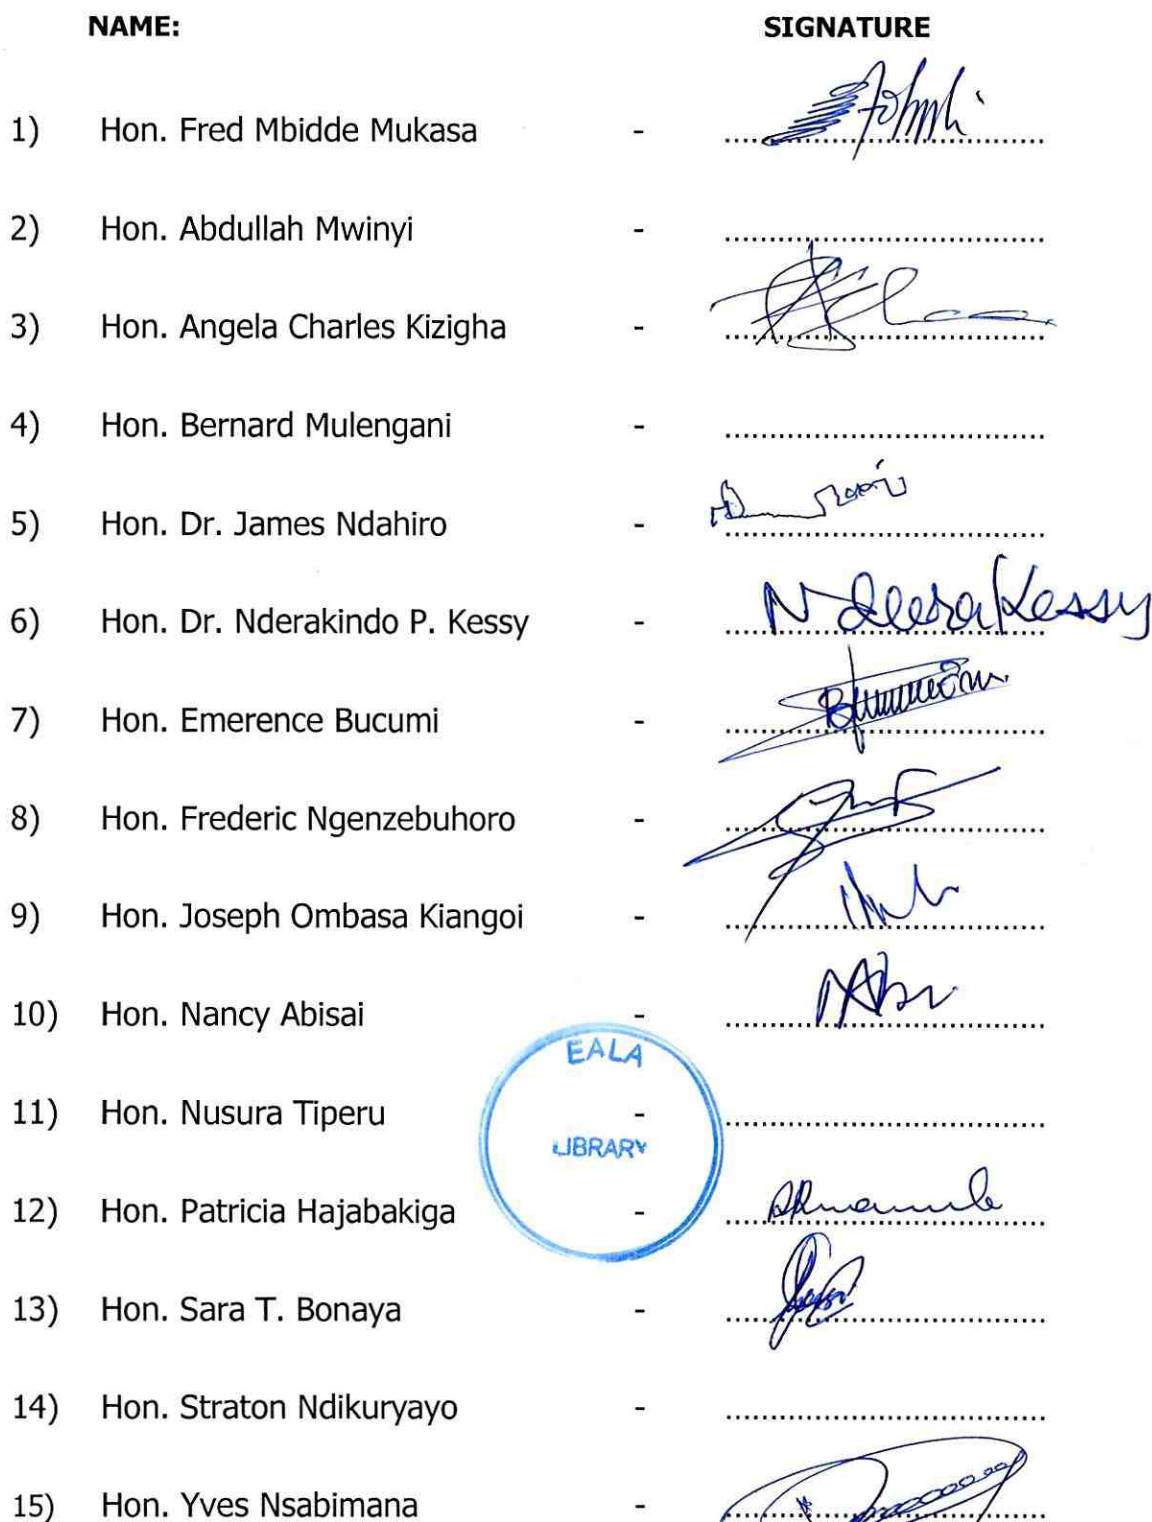 NAME: SIGNATURE
1) Hon. Fred Mbidde Mukasa - ........................................
2) Hon. Abdullah Mwinyi - ........................................
3) Hon. Angela Charles Kizigha - ........................................
4) Hon. Bernard Mulengani - ........................................
5) Hon. Dr. James Ndahiro - ........................................
6) Hon. Dr. Nderakindo P. Kessy - Kessy
7) Hon. Emerence Bucumi - ........................................
8) Hon. Frederic Ngenzebuhoro - ........................................
9) Hon. Joseph Ombasa Kiangoi - ........................................
10) Hon. Nancy Abisai - ........................................
EALA
11) Hon. Nusura Tiperu - ........................................
LIBRARY
12) Hon. Patricia Hajabakiga - ........................................
13) Hon. Sara T. Bonaya - ........................................
14) Hon. Straton Ndikuryayo - ........................................
15) Hon. Yves Nsabimana - ........................................